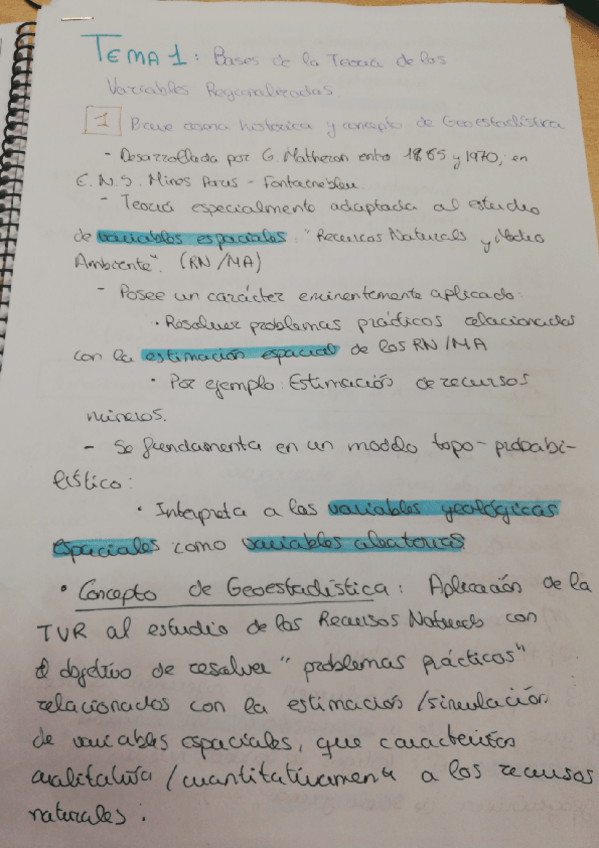 TEMA 1: Bases de la Teoria de las
Variables Regionalizadas.
1 Breve resena historica y concepto de Geoestadística
- Desarrollada por G. Matheron entre 1865 y 1970, en
E.N.S. Mines Paris - Fontainebleu.
- Teoria especialmente adaptada al estudio
de variables espaciales: "Recursos Naturals y Medio
Ambiente". (RN/MA)
- Posee un carácter eminentemente aplicado:
· Resolver problemas prácticos relacionados
con la estimación espacial de los RN/MA
· Por ejemplo: Estimación de recursos
mineros.
- Se fundamenta en un modelo topo-probabi-
lístico:
· Interpreta a las variables geológicas
espaciales como variables aleatorias
· Concepto de Geoestadística: Aplicación de la
TVR al estudio de los Recursos Naturals con
el objetivo de resolver "problemas prácticos"
relacionados con la estimación/simulación
de variables espaciales, que caracterizan
cualitativa/cuantitativamente a los recursos
naturales.